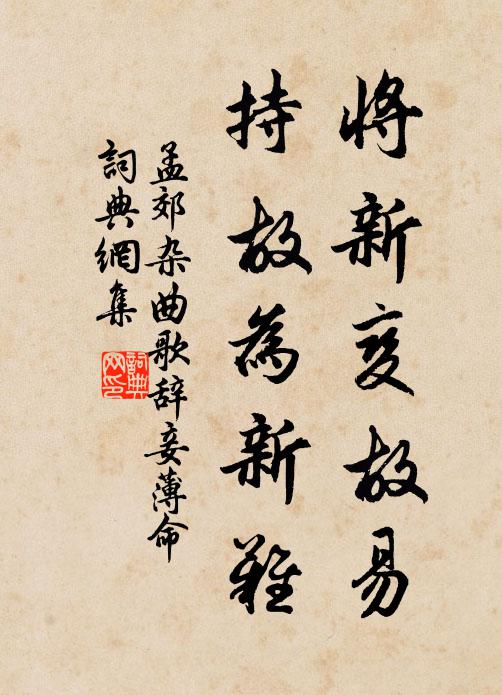 将新变故易
持故为新难
孟郊杂曲歌辞妾薄命
詞典網集
詞典网印